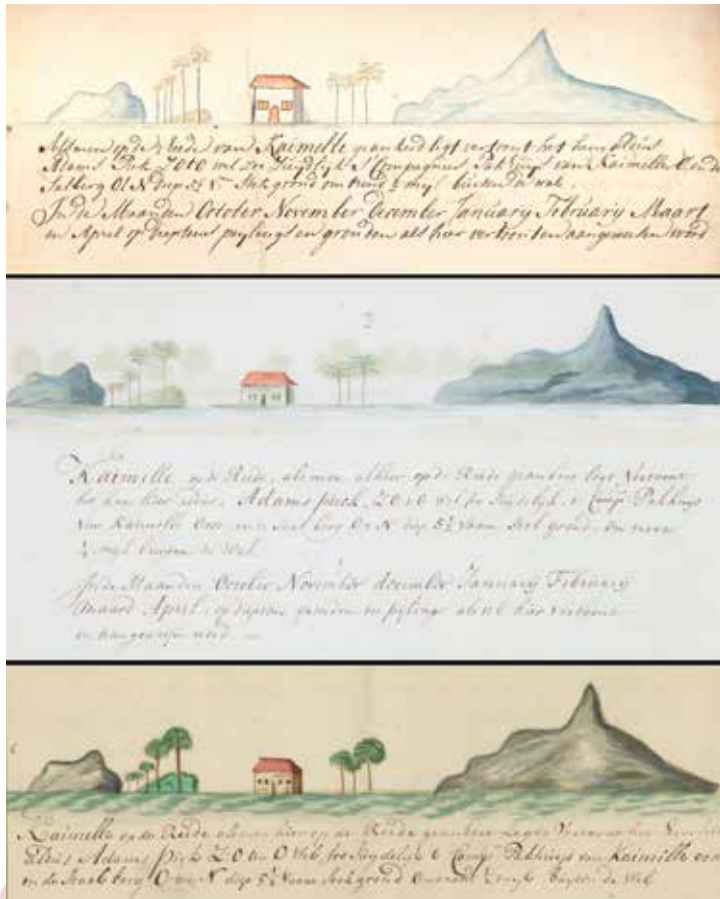 Alsmen op de Reede van Kaimelle geankerd ligt vertoont het hem aldus
Adams Piek ZOtO wel zoo Zuydlyk S' Compagnies Pakhuys van Kaimelle O. en de
Salberg OtN diep 5½ Stek grond om trent ½ myl buiten de wal.
In de Maanden October November December January February Maart
en April op dieptens peylings en gronden als hier vertoont en aangewesen word
Kaimelle op de Reede, alsmen alhier op de Reede geankert legt vertoont
het hem hier Adams pieck, ZOtO wel soo Suydelijk, 't Comp Pakhuys
van Kaimelle Oost en de Saal berg OtN diep 5½ Vaam Steek grond, om
½ mijl buyten de Wal
In de Maanden October November december January February
Maard April, op dieptens gronden en pijling als hier vertoont
en aangewesen word
Kaimelle op de Reede alsmen hier op de Reede geankert legt Vertoont hem
aldus Adams Pieck ZO ten O Wel soo Suydelijk 't Comp Pakhuys van Kaimelle oost
en de Saalberg O ten N diep 5½ Vaam Steek grond Omtrent ½ myl buyten de Wal